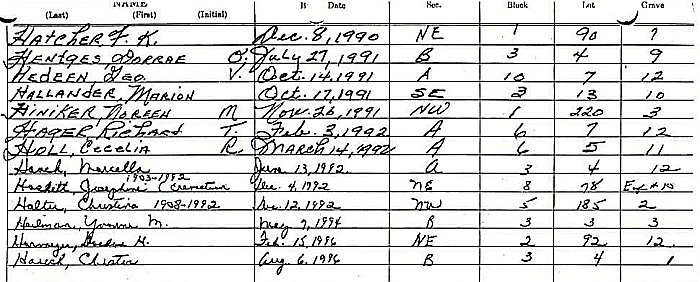 NAME B Date Sec. Block Lot Grave
(Last) (First) (Initial)
HATCHER F. K. Dec. 8, 1990 NE 1 90 7
HENTGES DORRAE O. July 27, 1991 B 3 4 9
HEDEEN, GEO. V. Oct. 14, 1991 A 10 7 12
HALLANDER, MARION Oct. 17, 1991 SE 3 13 10
HINIKER, NOREEN M Nov. 26, 1991 NW 1 220 3
HAGER RICHARD T. Feb. 3, 1992 A 6 7 12
HOLL, CECELIA R. MARCH 14, 1992 A 6 5 11
Hanch, Marcella June 13, 1992 A 3 4 12
1903-1992
Haskett, Josephine (Cremation Dec. 4, 1992 NE 8 78
Halter, Christina 1908-1992 Dec. 12, 1992 NW 5 185 2
Heilman, Yvonne M. May 7, 1994 B 3 3 3
H. Feb. 15, 1996 NE 2 92 12
Chester Aug. 6, 1996 B 3 4 1